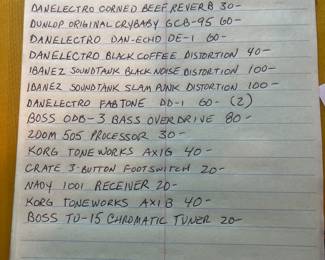 DANELECTRO CORNED BEEF REVERB 30-
DUNLOP ORIGINAL CRYBABY GCB-95 60-
DANELECTRO DAN-ECHO DE-1 60-
DANELECTRO BLACK COFFEE DISTORTION 40-
IBANEZ SOUNDTANK BLACK NOISE DISTORTION 100-
IBANEZ SOUNDTANK SLAM PUNK DISTORTION 100-
DANELECTRO FABTONE DD-1 60- (2)
BOSS ODB-3 BASS OVERDRIVE 80-
ZOOM 505 PROCESSOR 30-
KORG TONEWORKS AX1G 40-
CRATE 3-BUTTON FOOTSWITCH 20-
NADY 1001 RECEIVER 20-
KORG TONEWORKS AX1B 40-
BOSS TU-15 CHROMATIC TUNER 20-